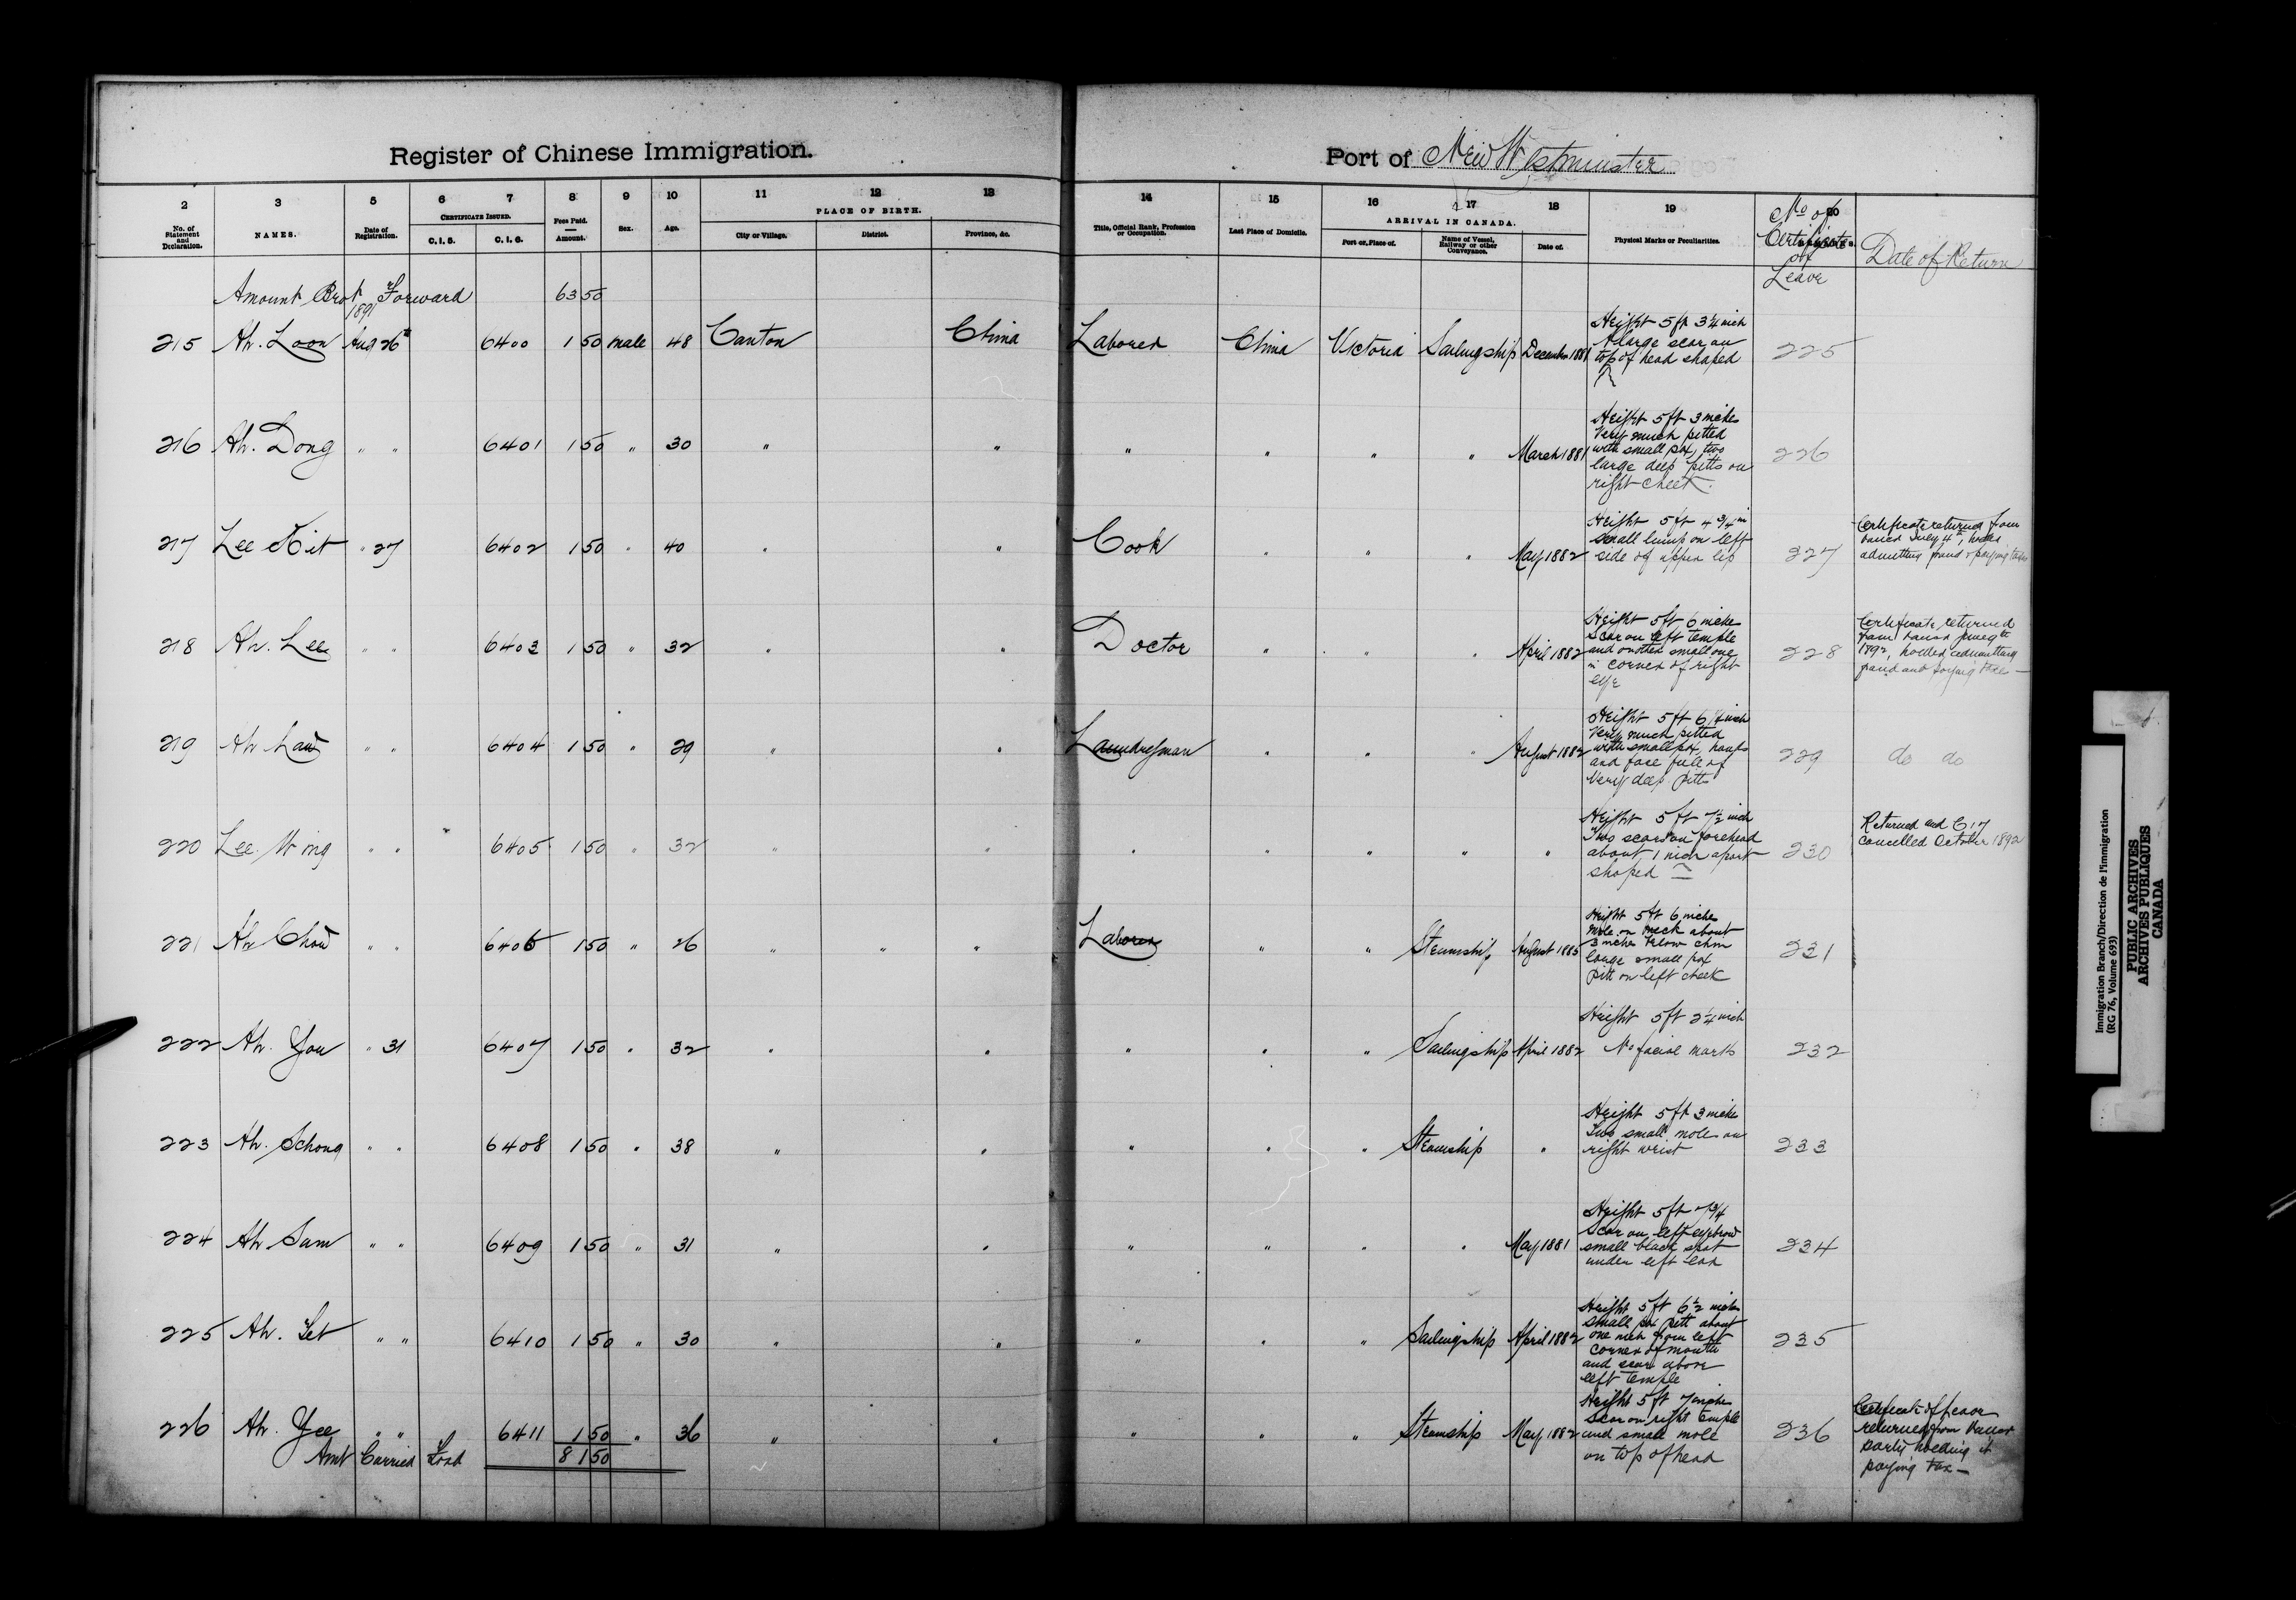 Register of Chinese Immigration.
Port of New Westminster
2 3 5 6 7 8 9 10 11 12 13 14 15 16 17 18 19 20
No. of Statement and Declaration. NAMES. Date of Registration. CERTIFICATE ISSUED. C.I.5. C.I.6. Fees Paid. Amount. Sex. Age. PLACE OF BIRTH. City or Village. District. Province, &c. Title, Official Rank, Profession or Occupation. Last Place of Domicile. ARRIVAL IN CANADA. Port or Place of. Name of Vessel, Railway or other Conveyance. Date of. Physical Marks or Peculiarities. No of Certificate of Leave Date of Return
Amount Brot Forward 63 50
1891
215 Ah. Loon Aug 26 6400 1 50 male 48 Canton China Laborer China Victoria Sailingship December 1881 Height 5 ft 3 1/4 inch A large scar on top of head shaped 225
216 Ah. Dong " " 6401 1 50 " 30 " " " " " " March 1881 Height 5 ft 3 inches Very much pitted with small pox, two large deep pitts on right cheek. 226
217 Lee Kit " 27 6402 1 50 " 40 " " Cook " " " May 1882 Height 5 ft 4 3/4 in small lump on left side of upper lip 227 Certificate returned from July 4th, admitting fraud & paying tax
218 Ah. Lee " " 6403 1 50 " 32 " " Doctor " " " April 1882 Height 5 ft 6 inches Scar on left temple and another small one in corner of right eye 228 Certificate returned from 1892, holder admitting fraud and paying tax —
219 Ah Law " " 6404 1 50 " 29 " " Laundryman " " " August 1882 Height 5 ft 6 1/4 inch Very much pitted with small pox, and face full of very deep pitts 229 do do
220 Lee Wing " " 6405 1 50 " 32 " " " " " " " Height 5 ft 7 1/2 inch Two scars on forehead about 1 inch apart shaped 230 Returned and C17 cancelled October 1892
221 Ah Chow " " 6406 1 50 " 26 " " " Laborer " " Steamship August 1885 Height 5 ft 6 inches mole on neck about 3 inches below chin large small pox pitt on left cheek 231
222 Ah. You " 31 6407 1 50 " 32 " " " " " Sailingship April 1882 Height 5 ft 2 1/4 inch No facial marks 232
223 Ah. Schong " " 6408 1 50 " 38 " " " " " Steamship " Height 5 ft 3 inches Two small moles on right wrist 233
224 Ah Sam " " 6409 1 50 " 31 " " " " " " May 1881 Height 5 ft 7 3/4 Scar on left eyebrow small black spot under left ear 234
225 Ah. Yet " " 6410 1 50 " 30 " " " " " Sailingship April 1882 Height 5 ft 6 1/2 inches small pox pitt about one inch from left corner of mouth and scar above left temple 235
226 Ah. Yee " " 6411 1 50 " 36 " " " " " Steamship May 1882 Height 5 ft 7 inches Scar on right temple and small mole on top of head 236 Certificate of leave returned from party holding it paying tax —
Amt Carried Ford 81 50
Immigration Branch/Direction de l'immigration
(RG 76, Volume 693)
PUBLIC ARCHIVES
ARCHIVES PUBLIQUES
CANADA